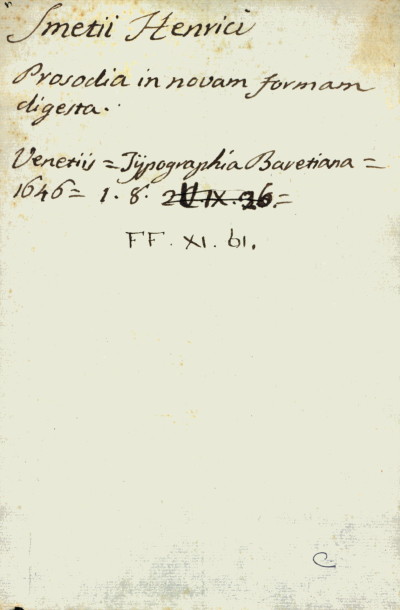 Smetii Henrici
Prosodia in novam formam
digesta.
Venetiis = Typographia Baretiana =
1646 = 1. 8. IX. 26 =
FF. XI. 61.
C